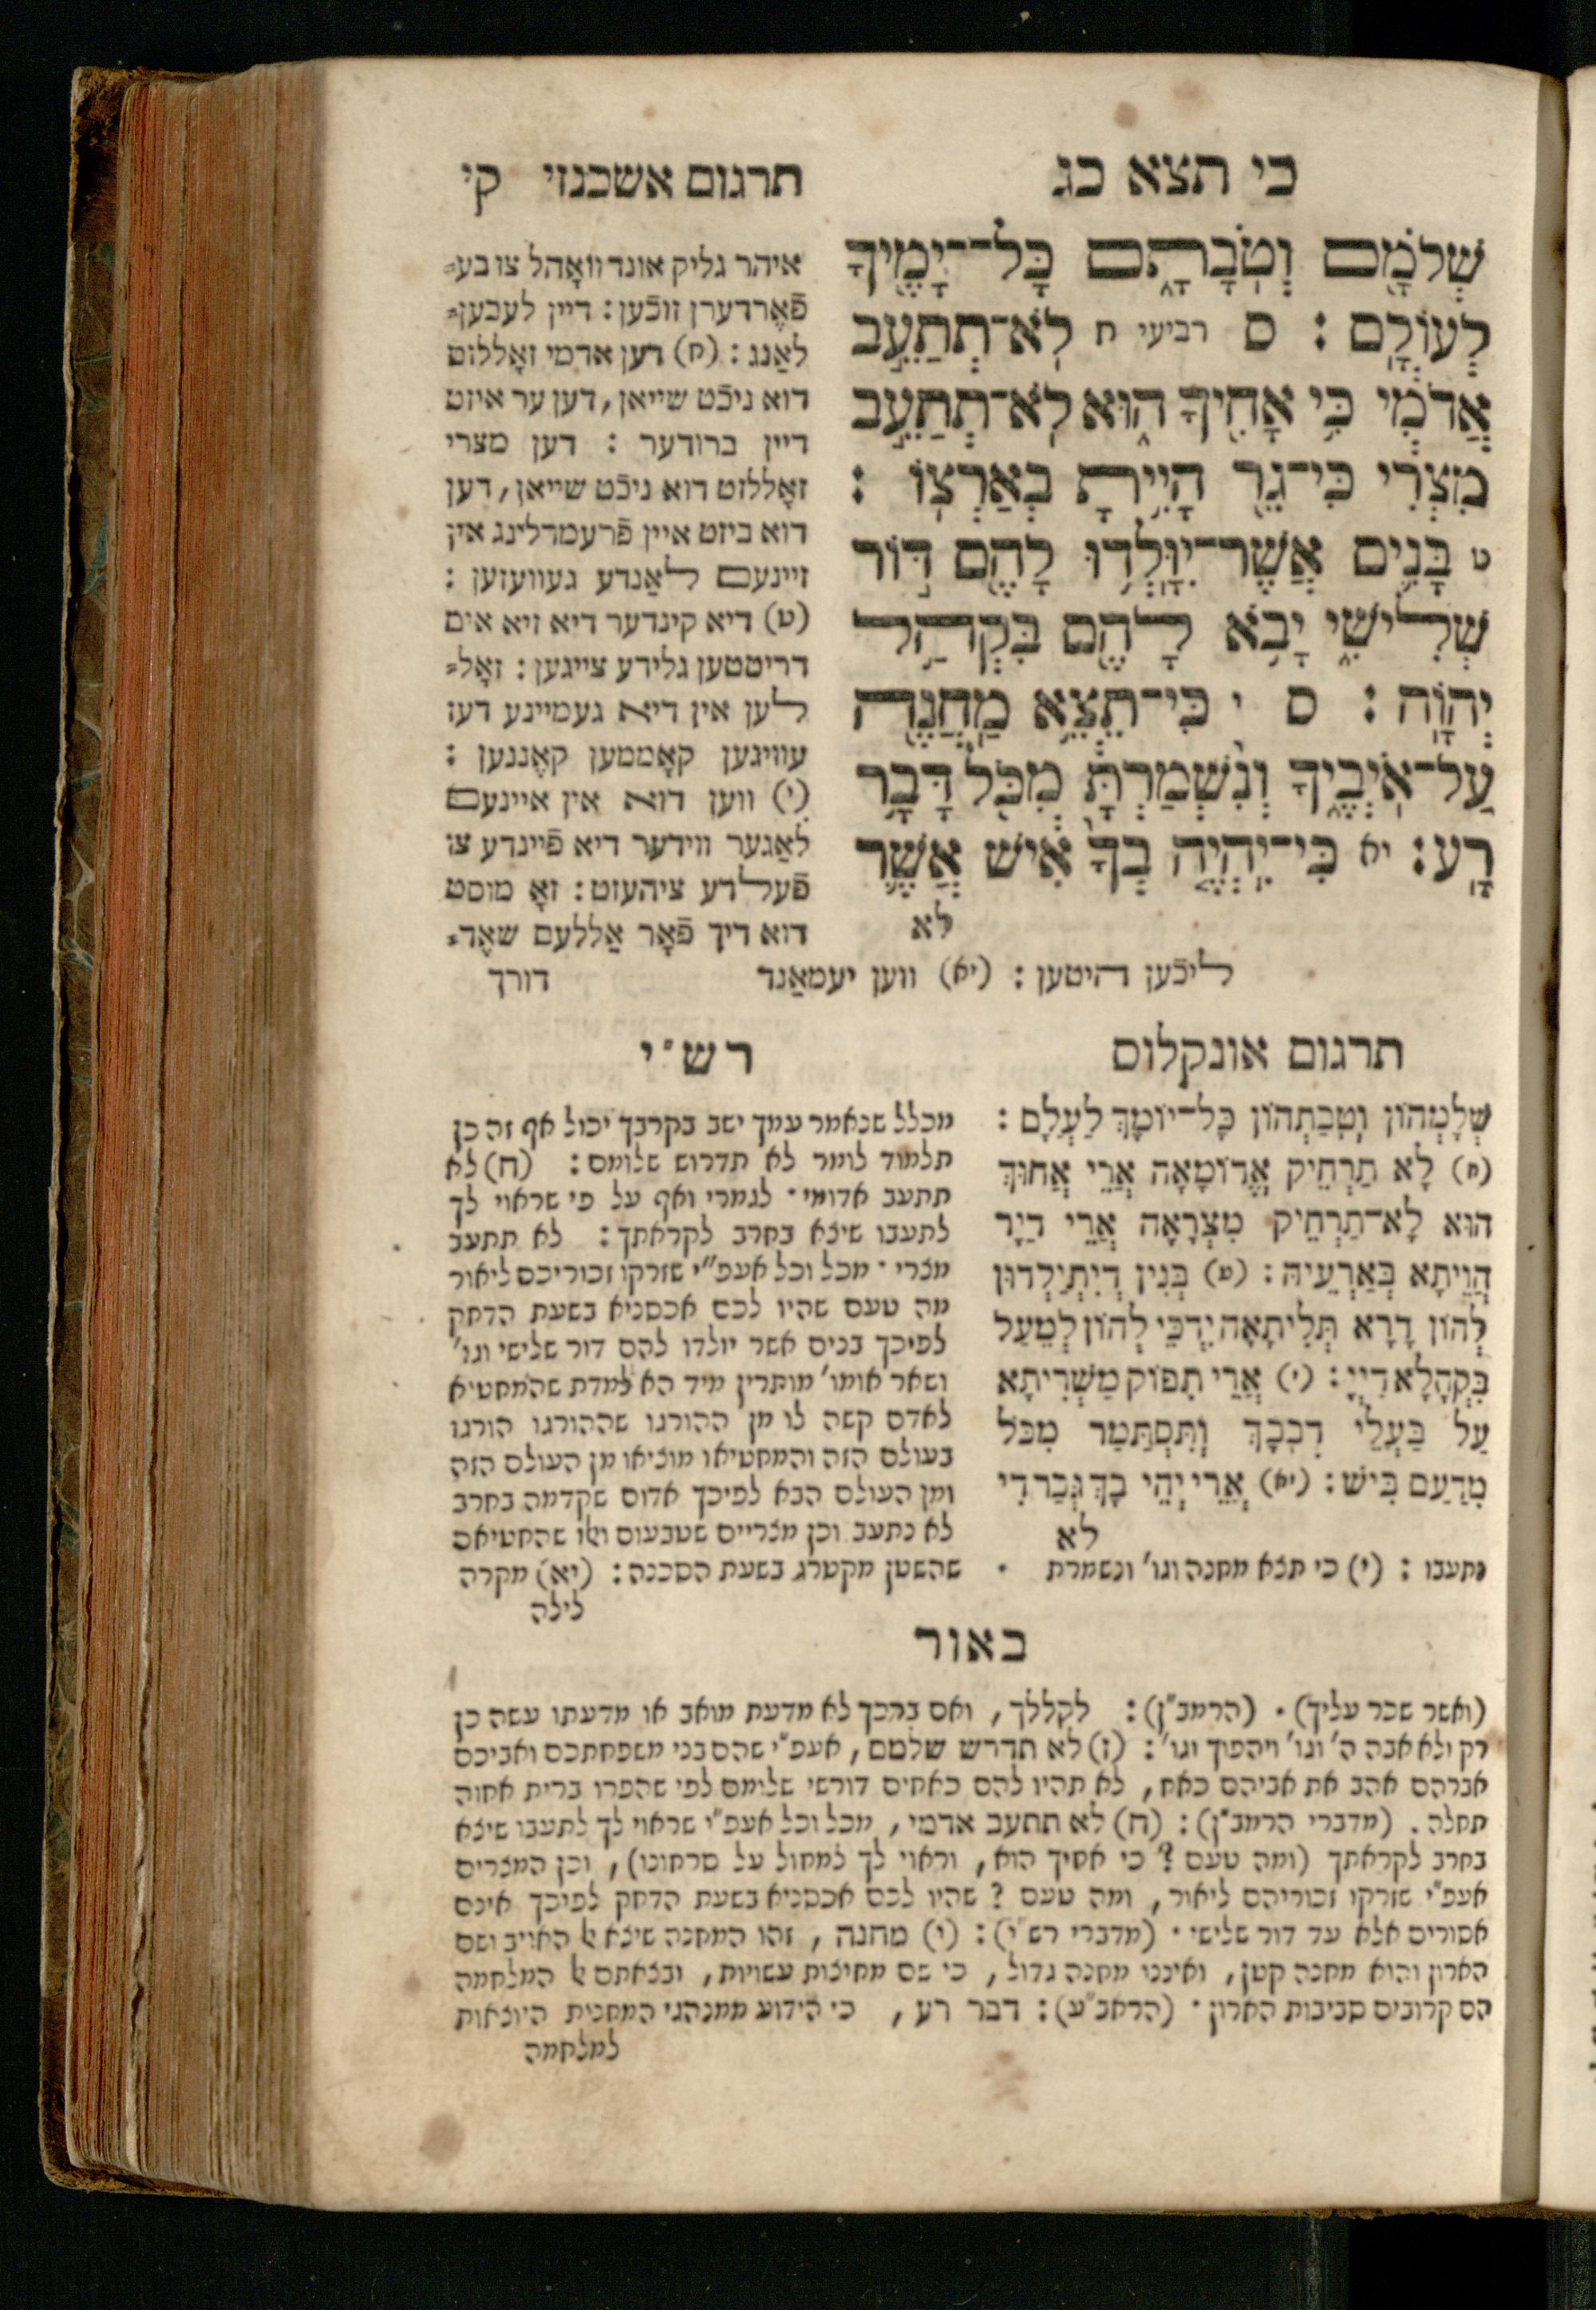 כי תצא כג
תרגום אשכנזי קי
שְׁלֹמָ֖ם וְטֹבָתָ֑ם כָּל־יָמֶ֖יךָ
לְעוֹלָֽם : ס רביעי ח לֹֽא־תְתַעֵ֣ב
אֲדֹמִ֔י כִּ֥י אָחִ֖יךָ ה֑וּא לֹא־תְתַעֵ֣ב
מִצְרִ֔י כִּי־גֵ֖ר הָיִ֥יתָ בְאַרְצֽוֹ :
ט בָּנִ֛ים אֲשֶׁר־יִוָּלְד֥וּ לָהֶ֖ם דּ֣וֹר
שְׁלִישִׁ֑י יָבֹ֥א לָהֶ֖ם בִּקְהַ֥ל
יְהוָֽה : ס י כִּי־תֵצֵ֥א מַחֲנֶ֖ה
עַל־אֹיְבֶ֑יךָ וְנִ֨שְׁמַרְתָּ֔ מִכֹּ֖ל דָּבָ֥ר
רָֽע : יא כִּי־יִהְיֶ֤ה בְךָ֙ אִ֔ישׁ אֲשֶׁ֛ר
לא
איהר גליק אונד וואָהל צו בע=
פֿאָרדערן זוכֿען : דיין לעבען=
לאַנג : (ח) דען אדמי זאָללזט
דוא ניכֿט שייאן, דען ער איזט
דיין ברודער : דען מצרי
זאָללזט דוא ניכֿט שייאן, דען
דוא ביזט איין פֿרעמדלינג אין
זיינעם לאַנדע געוועזען :
(ט) דיא קינדער דיא זיא אים
דריטטען גלידע צייגען : זאָל=
לען אין דיא געמיינע דעז
עוויגען קאָממען קאָננען :
(י) ווען דוא אין איינעם
לאַגער ווידער דיא פֿיינדע צו
פֿעלדע ציהעזט : זאָ מוסט
דוא דיך פֿאָר אַללעם שאָד=
ליכֿען היטען : (יא) ווען יעמאַנד
דורך
תרגום אונקלוס
שְׁלָמְהוֹן וְטָבַתְהוֹן כָּל־יוֹמָךְ לַעֲלָם :
(ח) לָא תַרְחֵיק אֲדוֹמָאָה אֲרֵי אֲחוּךְ
הוּא לָא־תַרְחֵיק מִצְרָאָה אֲרֵי דַיָר
הֲוֵיתָא בְּאַרְעֵיהּ : (ט) בְּנִין דְיִתְיַלְדוּן
לְהוֹן דָרָא תְּלִיתָאָה יִדְכֵּי לְהוֹן לְמֵעַל
בִּקְהָלָא דַיְיָ : (י) אֲרֵי תִפּוֹק מַשְׁרִיתָא
עַל בַּעֲלֵי דְבָבָךְ וְתִסְתַּמַר מִכֹּל
מִדַעַם בִּישׁ : (יא) אֲרֵי יְהֵי בָךְ גְּבַר דִי
לא
רש"י
מכלל שנאמר עמך ישב בקרבך יכול אף זה כן
תלמוד לומר לא תדרוש שלומם : (ח) לא
תתעב אדומי · לגמרי ואף על פי שראוי לך
לתעבו שיצא בחרב לקראתך : לא תתעב
מצרי · מכל וכל אעפ"י שזרקו זכוריכם ליאור
מה טעם שהיו לכם אכסניא בשעת הדחק
לפיכך בנים אשר יולדו להם דור שלישי וגו'
ושאר אומו' מותרין מיד הא למדת שהמחטיא
לאדם קשה לו מן ההורגו שההורגו הורגו
בעולם הזה והמחטיאו מוציאו מן העולם הזה
ומן העולם הבא לפיכך אדום שקדמה בחרב
לא נתעב וכן מצריים שטבעום ואלו שהחטיאם
נתעבו : (י) כי תצא מחנה וגו' ונשמרת · שהשטן מקטרג בשעת הסכנה : (יא) מקרה
לילה
באור
(ואשר שכר עליך) · (הרמב"ן) : לקללך, ואם ברכך לא מדעת מואב או מדעתו עשה כן
רק ולא אבה ה' וגו' ויהפוך וגו' : (ז) לא תדרש שלמם, אעפ"י שהם בני משפחתכם ואביכם
אברהם אהב את אביהם כאח, לא תהיו להם כאחים דורשי שלומם לפי שהפרו ברית אחוה
תחלה. (מדברי הרמב"ן) : (ח) לא תתעב אדמי, מכל וכל אעפ"י שראוי לך לתעבו שיצא
בחרב לקראתך (ומה טעם ? כי אחיך הוא, וראוי לך למחול על סרחונו), וכן המצרים
אעפ"י שזרקו זכוריהם ליאור, ומה טעם ? שהיו לכם אכסניא בשעת הדחק לפיכך אינם
אסורים אלא עד דור שלישי · (מדברי רש"י) : (י) מחנה, זהו המחנה שיצא אל האויב ושם
הארון והוא מחנה קטן, ואיננו מחנה גדול, כי שם מחיצות עשויות, ובצאתם אל המלחמה
הם קרובים סביבות הארון · (הראב"ע) : דבר רע, כי הידוע ממנהגי המחנית היוצאות
למלחמה